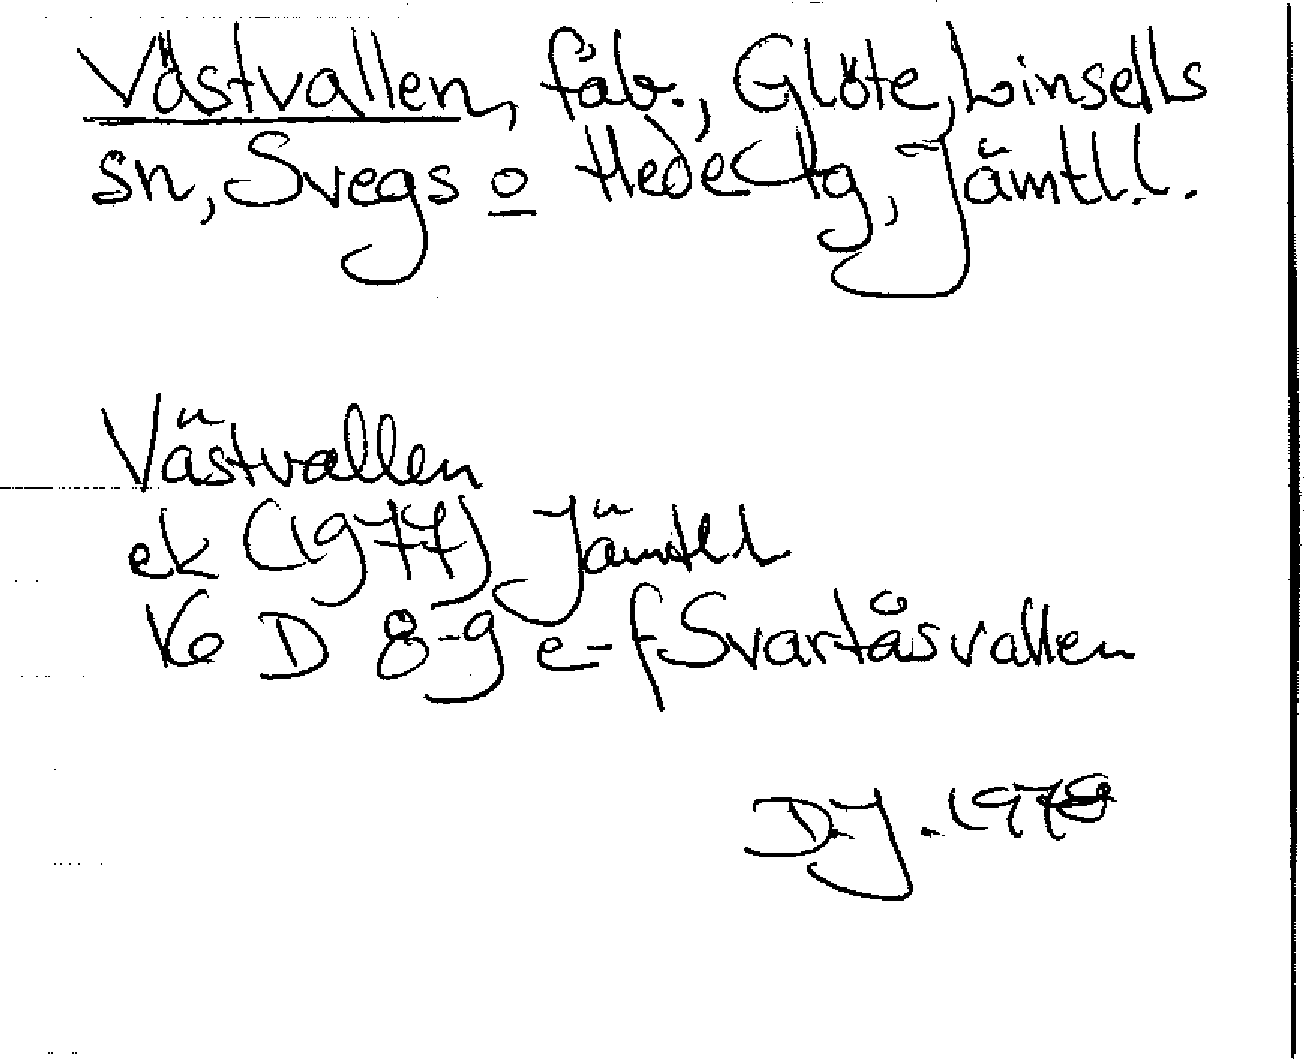 Västvallen, fäb., Glöte, Linsells
sn, Svegs o Hede tlg, Jämtl.l.
Västvallen
ek (1977) Jämtl l
16 D 8-9 e-f Svartåsvallen
D.J. 1979